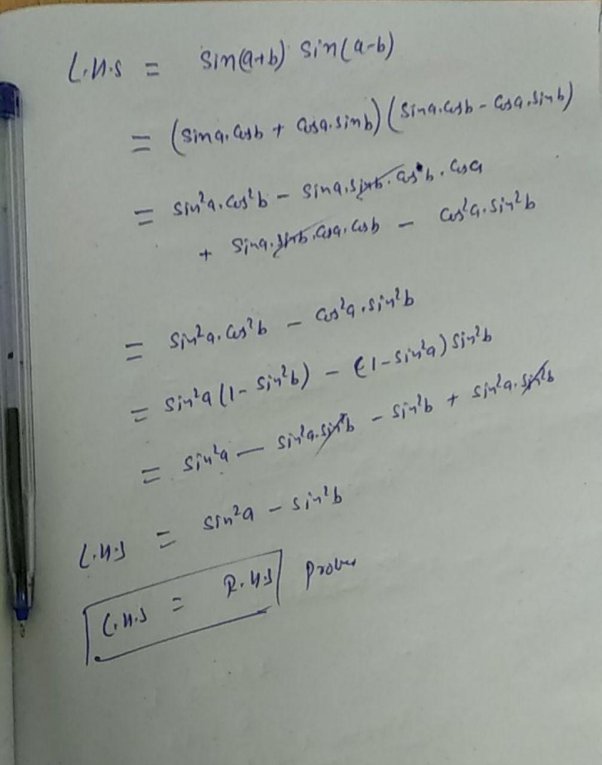 L.H.S = sin(a+b) sin(a-b)
= (sina.cosb + cosa.sinb) (sina.cosb - cosa.sinb)
= sin²a.cos²b - sina.sinb.cosb.cosa
+ sina.sinb.cosa.cosb - cos²a.sin²b
= sin²a.cos²b - cos²a.sin²b
= sin²a (1- sin²b) - (1-sin²a) sin²b
= sin²a - sin²a.sin²b - sin²b + sin²a.sin²b
L.H.S = sin²a - sin²b
L.H.S = R.H.S Proved